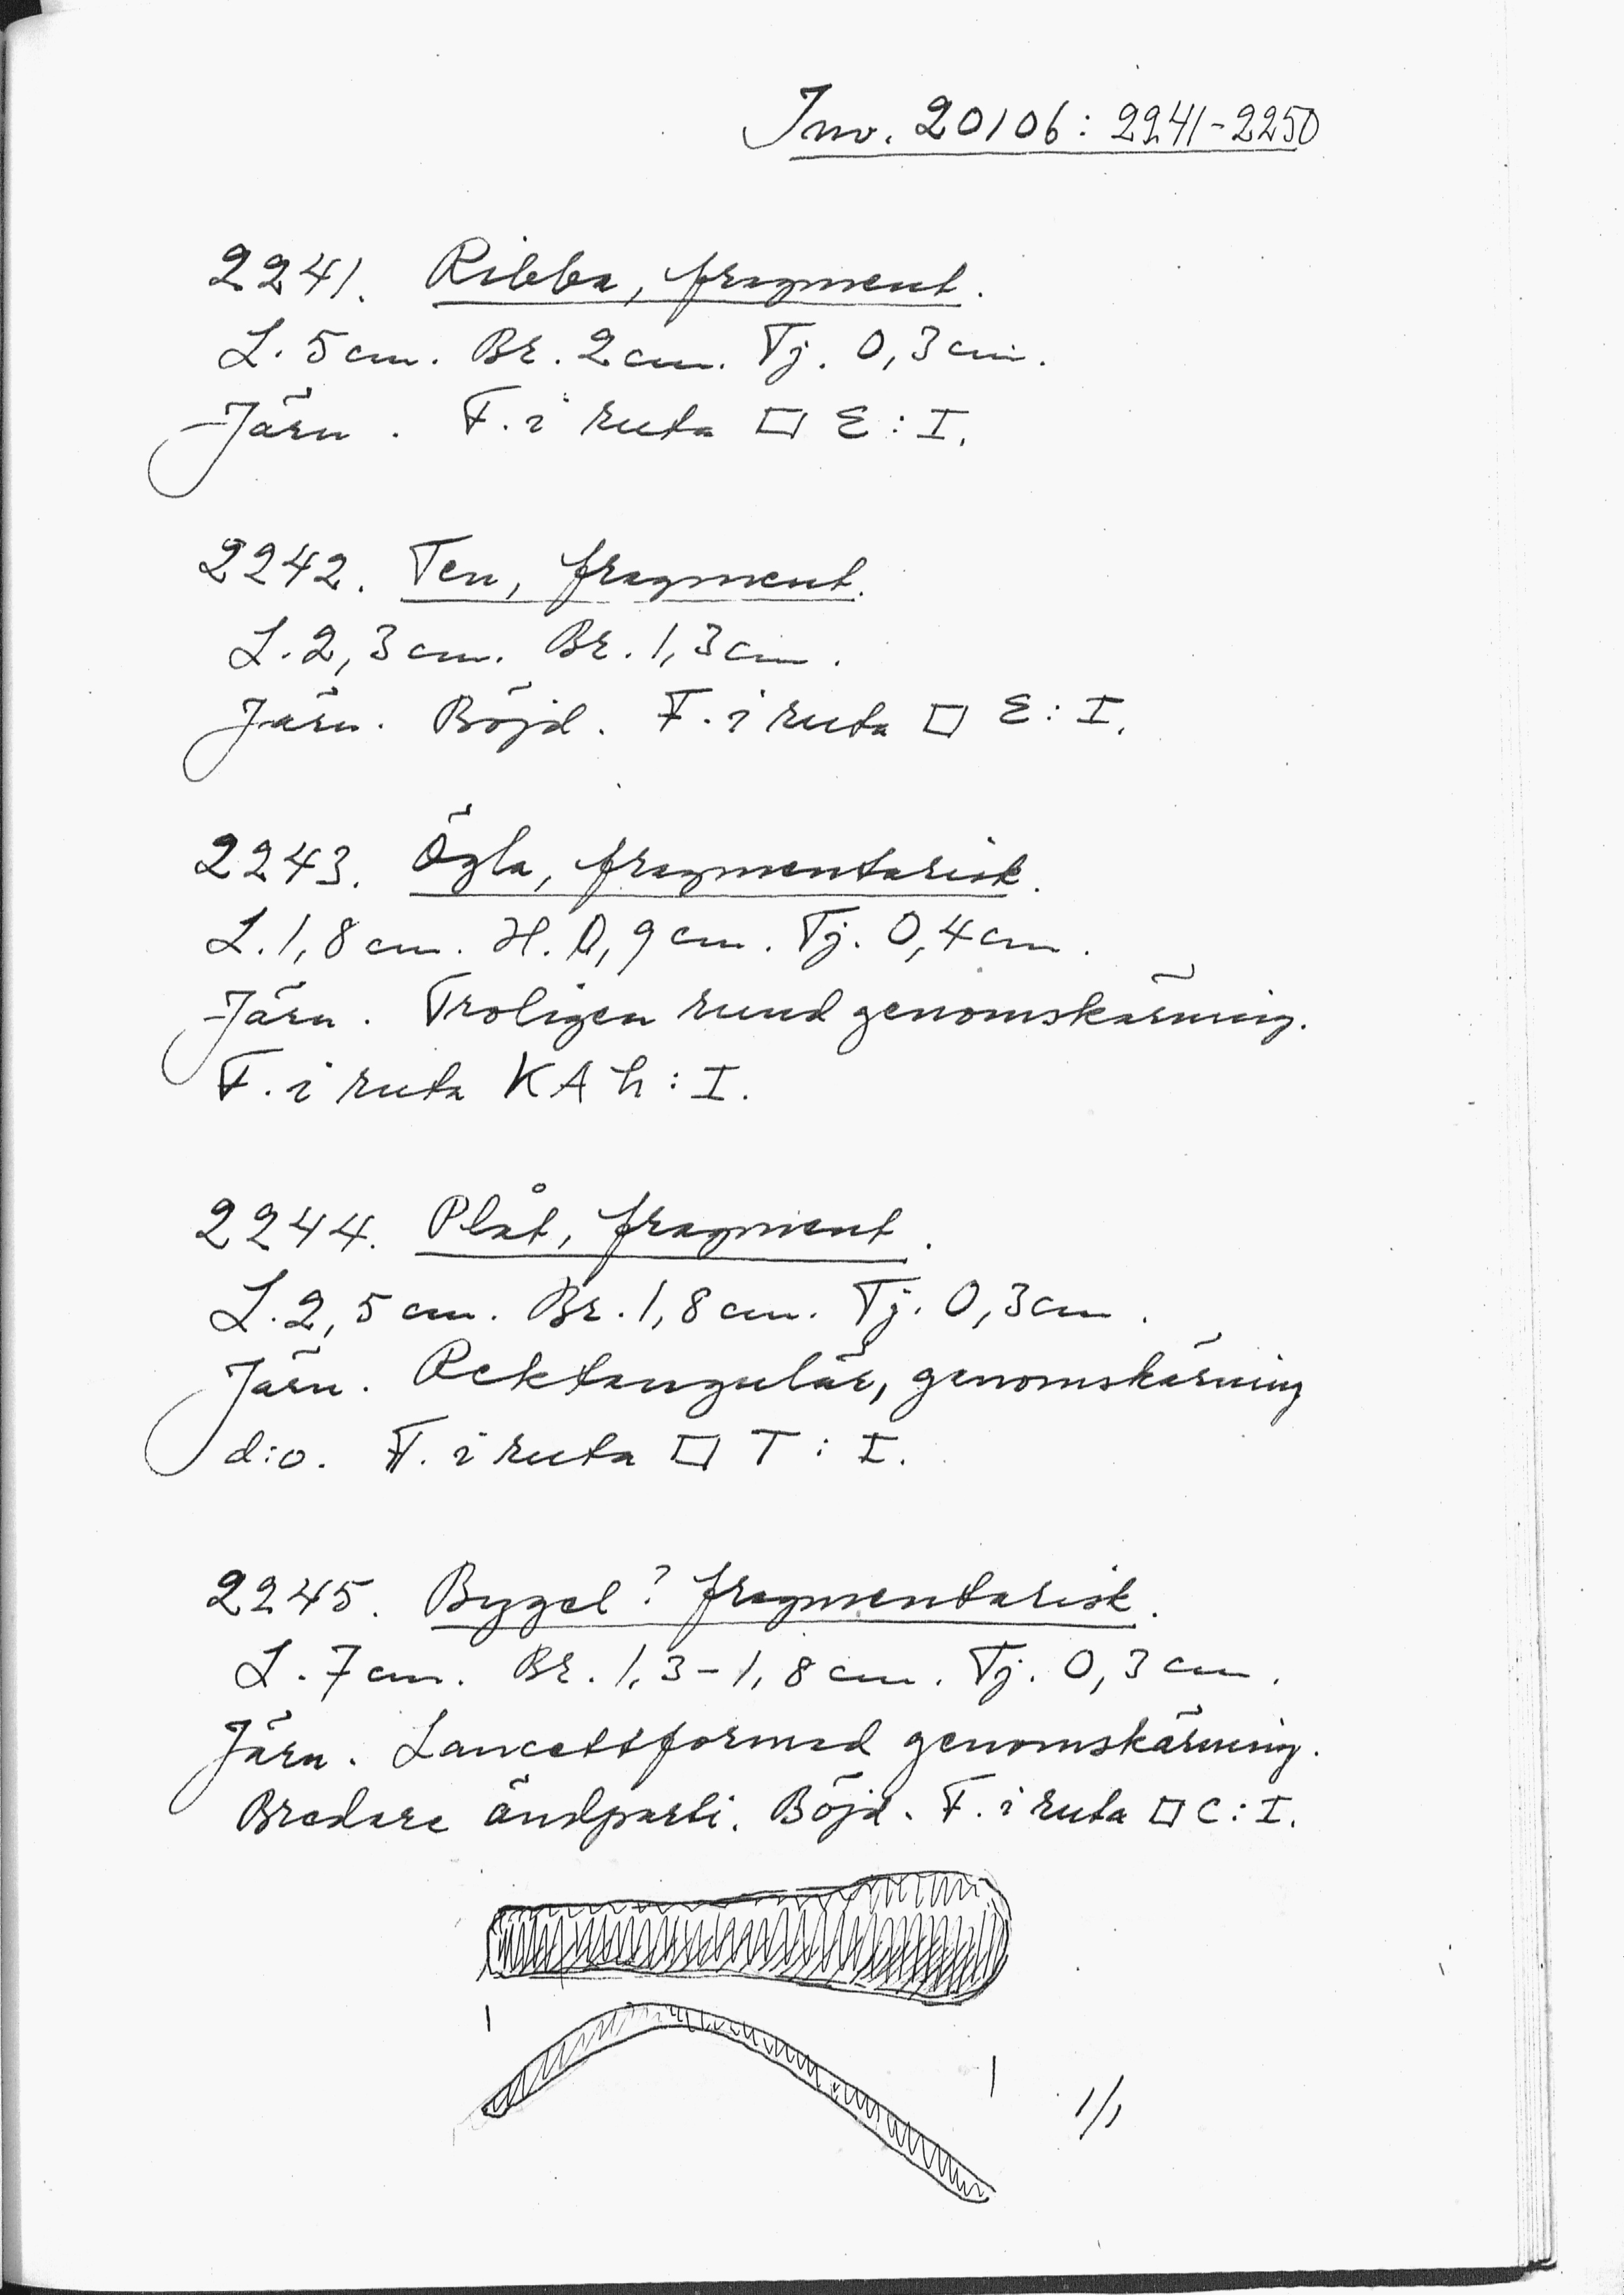 Inv. 20106: 2241-2250
2241. Ribba, fragment.
L. 5 cm. Br. 2 cm. Tj. 0,3 cm.
Järn. F. i ruta □ E : I.
2242. Ten, fragment.
L. 2,3 cm. Br. 1,3 cm.
Järn. Böjd. F. i ruta □ E : I.
2243. Ögla, fragmentarisk.
L. 1,8 cm. H. 0,9 cm. Tj. 0,4 cm.
Järn. Troligen rund genomskärning.
F. i ruta KA h : I.
2244. Plåt, fragment.
L. 2,5 cm. Br. 1,8 cm. Tj. 0,3 cm.
Järn. Rektangulär, genomskärning
d:o. F. i ruta □ T : I.
2245. Bygel? fragmentarisk.
L. 7 cm. Br. 1,3-1,8 cm. Tj. 0,3 cm.
Järn. Lancettformad genomskärning.
Bredare ändparti. Böjd. F. i ruta □ C : I.
1/1